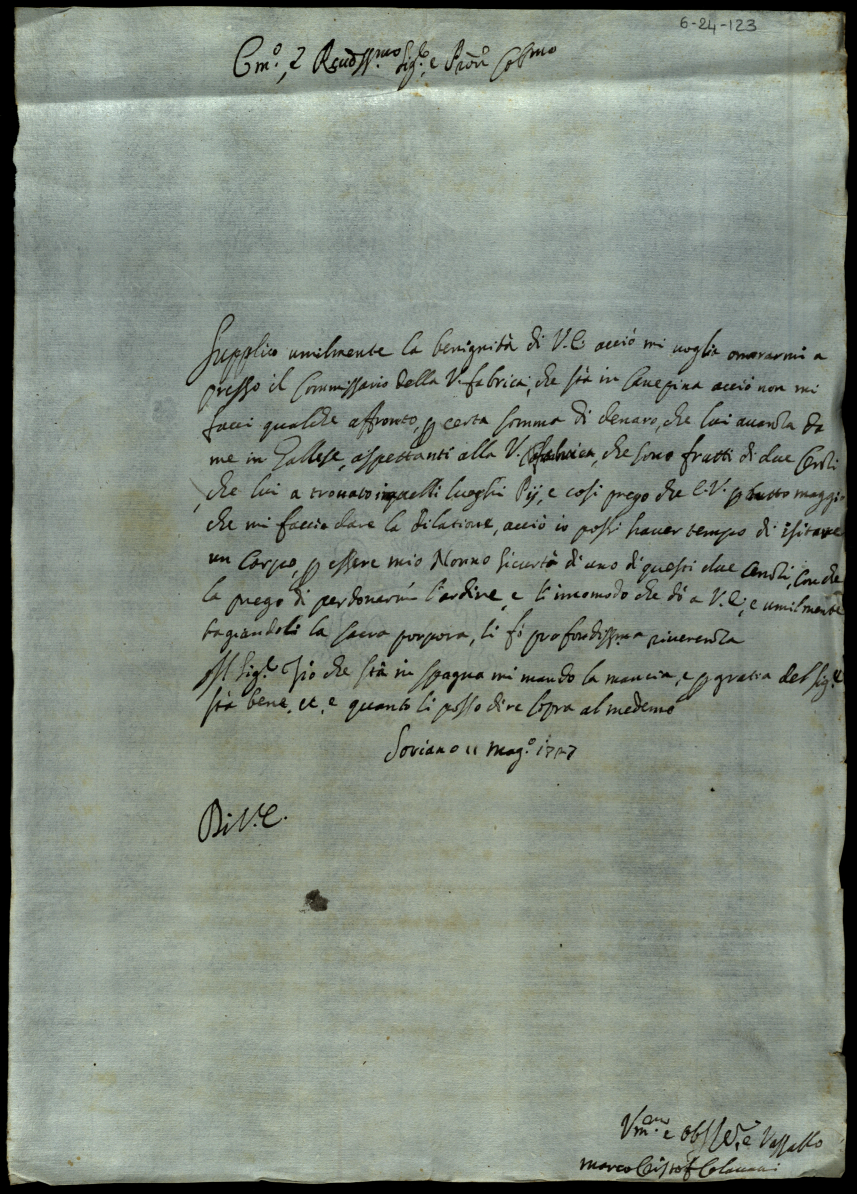 6-24-123
Em.º, e Reudss.mo Sig.re, e Prōn Colmo
Supplico umilmente la benignità di V.E. acciò mi voglia onorarmi a
presso il Commissario della V. fabrica, che stà in Canepina acciò non mi
facci qualche affronto, p certa somma di denaro, che lui avanza da
me in Gallese, aspettanti alla V. fabrica, che sono frutti di due Censi
che lui a trovato in quelli luoghi Pij, e così prego che E.V. p tutto maggi.
che mi faccia dare la dilatione, acciò io possi haver tempo di isitare
un corpo, p essere mio Nonno sicurtà di uno di questi due Censi, Con che
la prego di perdonarmi l'ardire, e li incomodo che dò a V.E., e umilmente
bagiandoli la sacra porpora, li fò profondissma riverenza
Il Sig.r Zio che stà in spagna mi mando la mancia, e p gratia del Sig.re
stà bene, et, e quanto li posso dire sopra al medemo
Soriano 11 mag.º 1727
Di V.E.
Vm.mo e obb Ser.e e Vassallo
marco Cristof